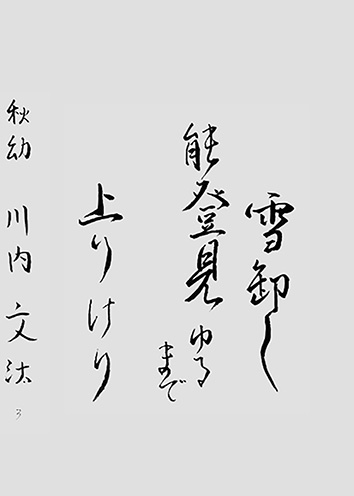 雪卸し
能登見ゆる
まで
上りけり
秋幼 川内文汰
3